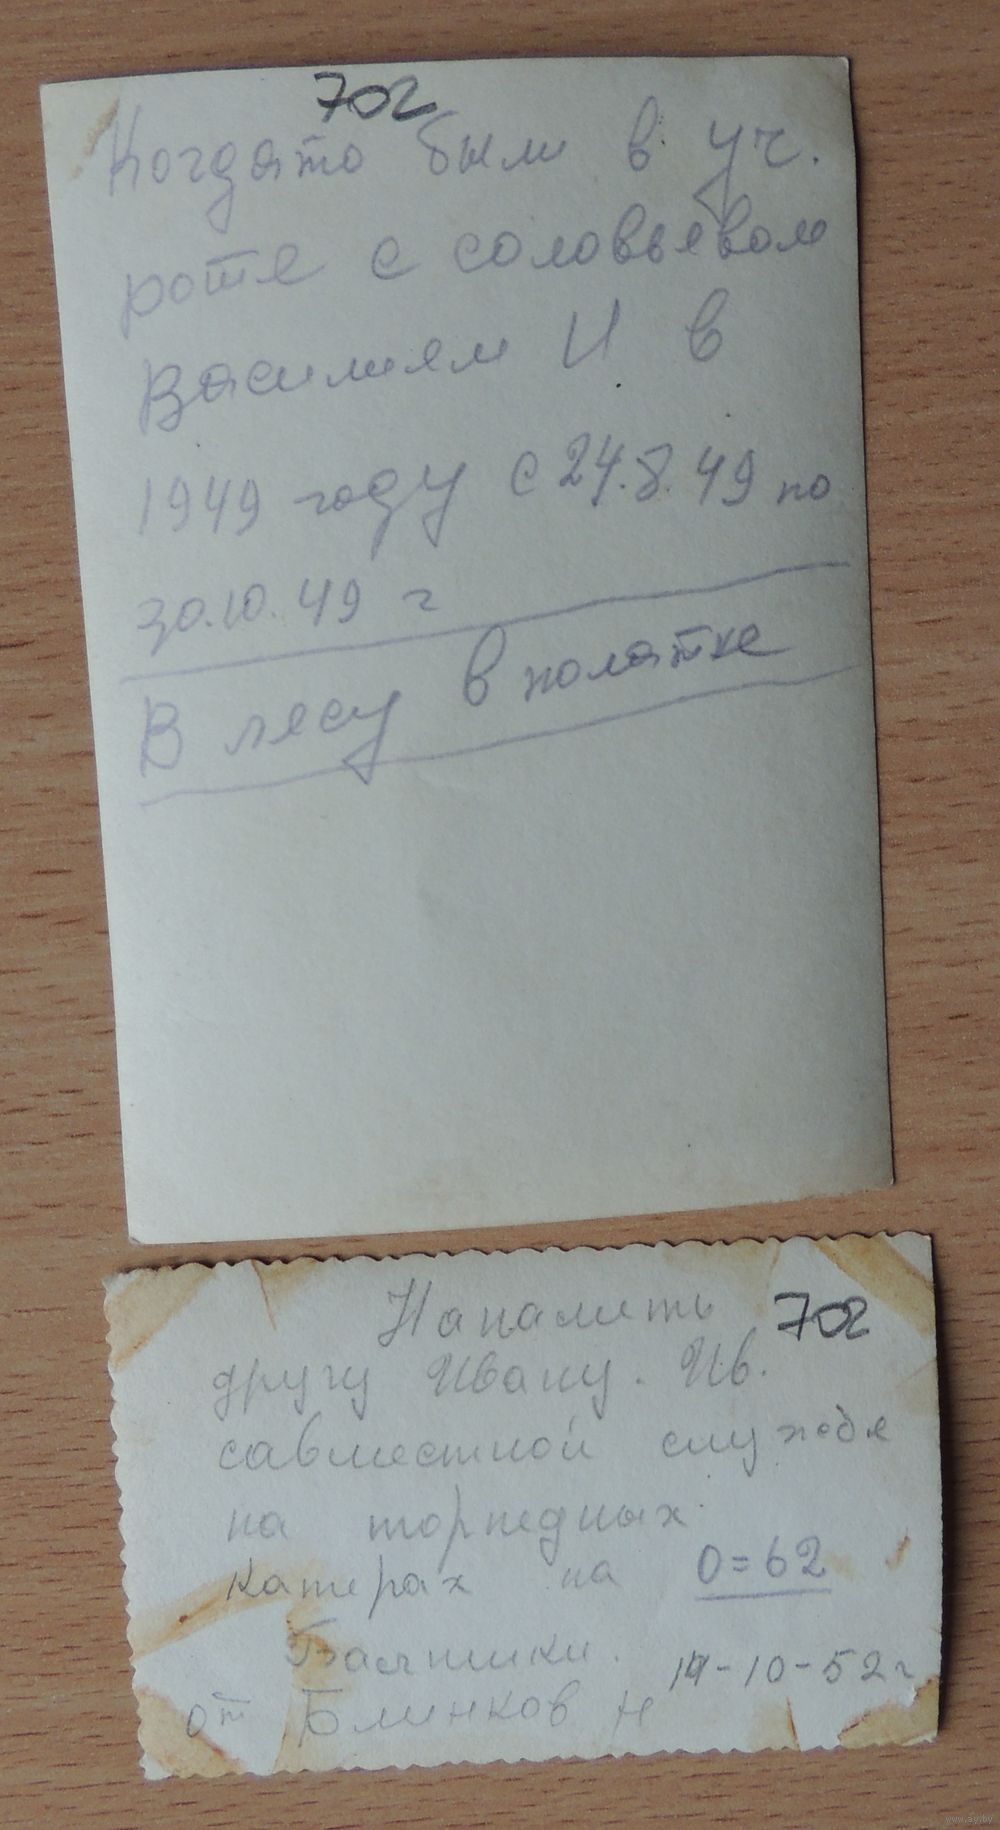 702
Когдато были в уч.
роте с соловьевом
Василием И в
1949 году с 24.8.49 по
30.10.49 г
В лесу в полатке
Напамить 702
другу Ивану. Ив.
савместной службе
на торпедных
катерах на О=62
Балтики. 14-10-52 г
от Блинков Н
www.ay.by